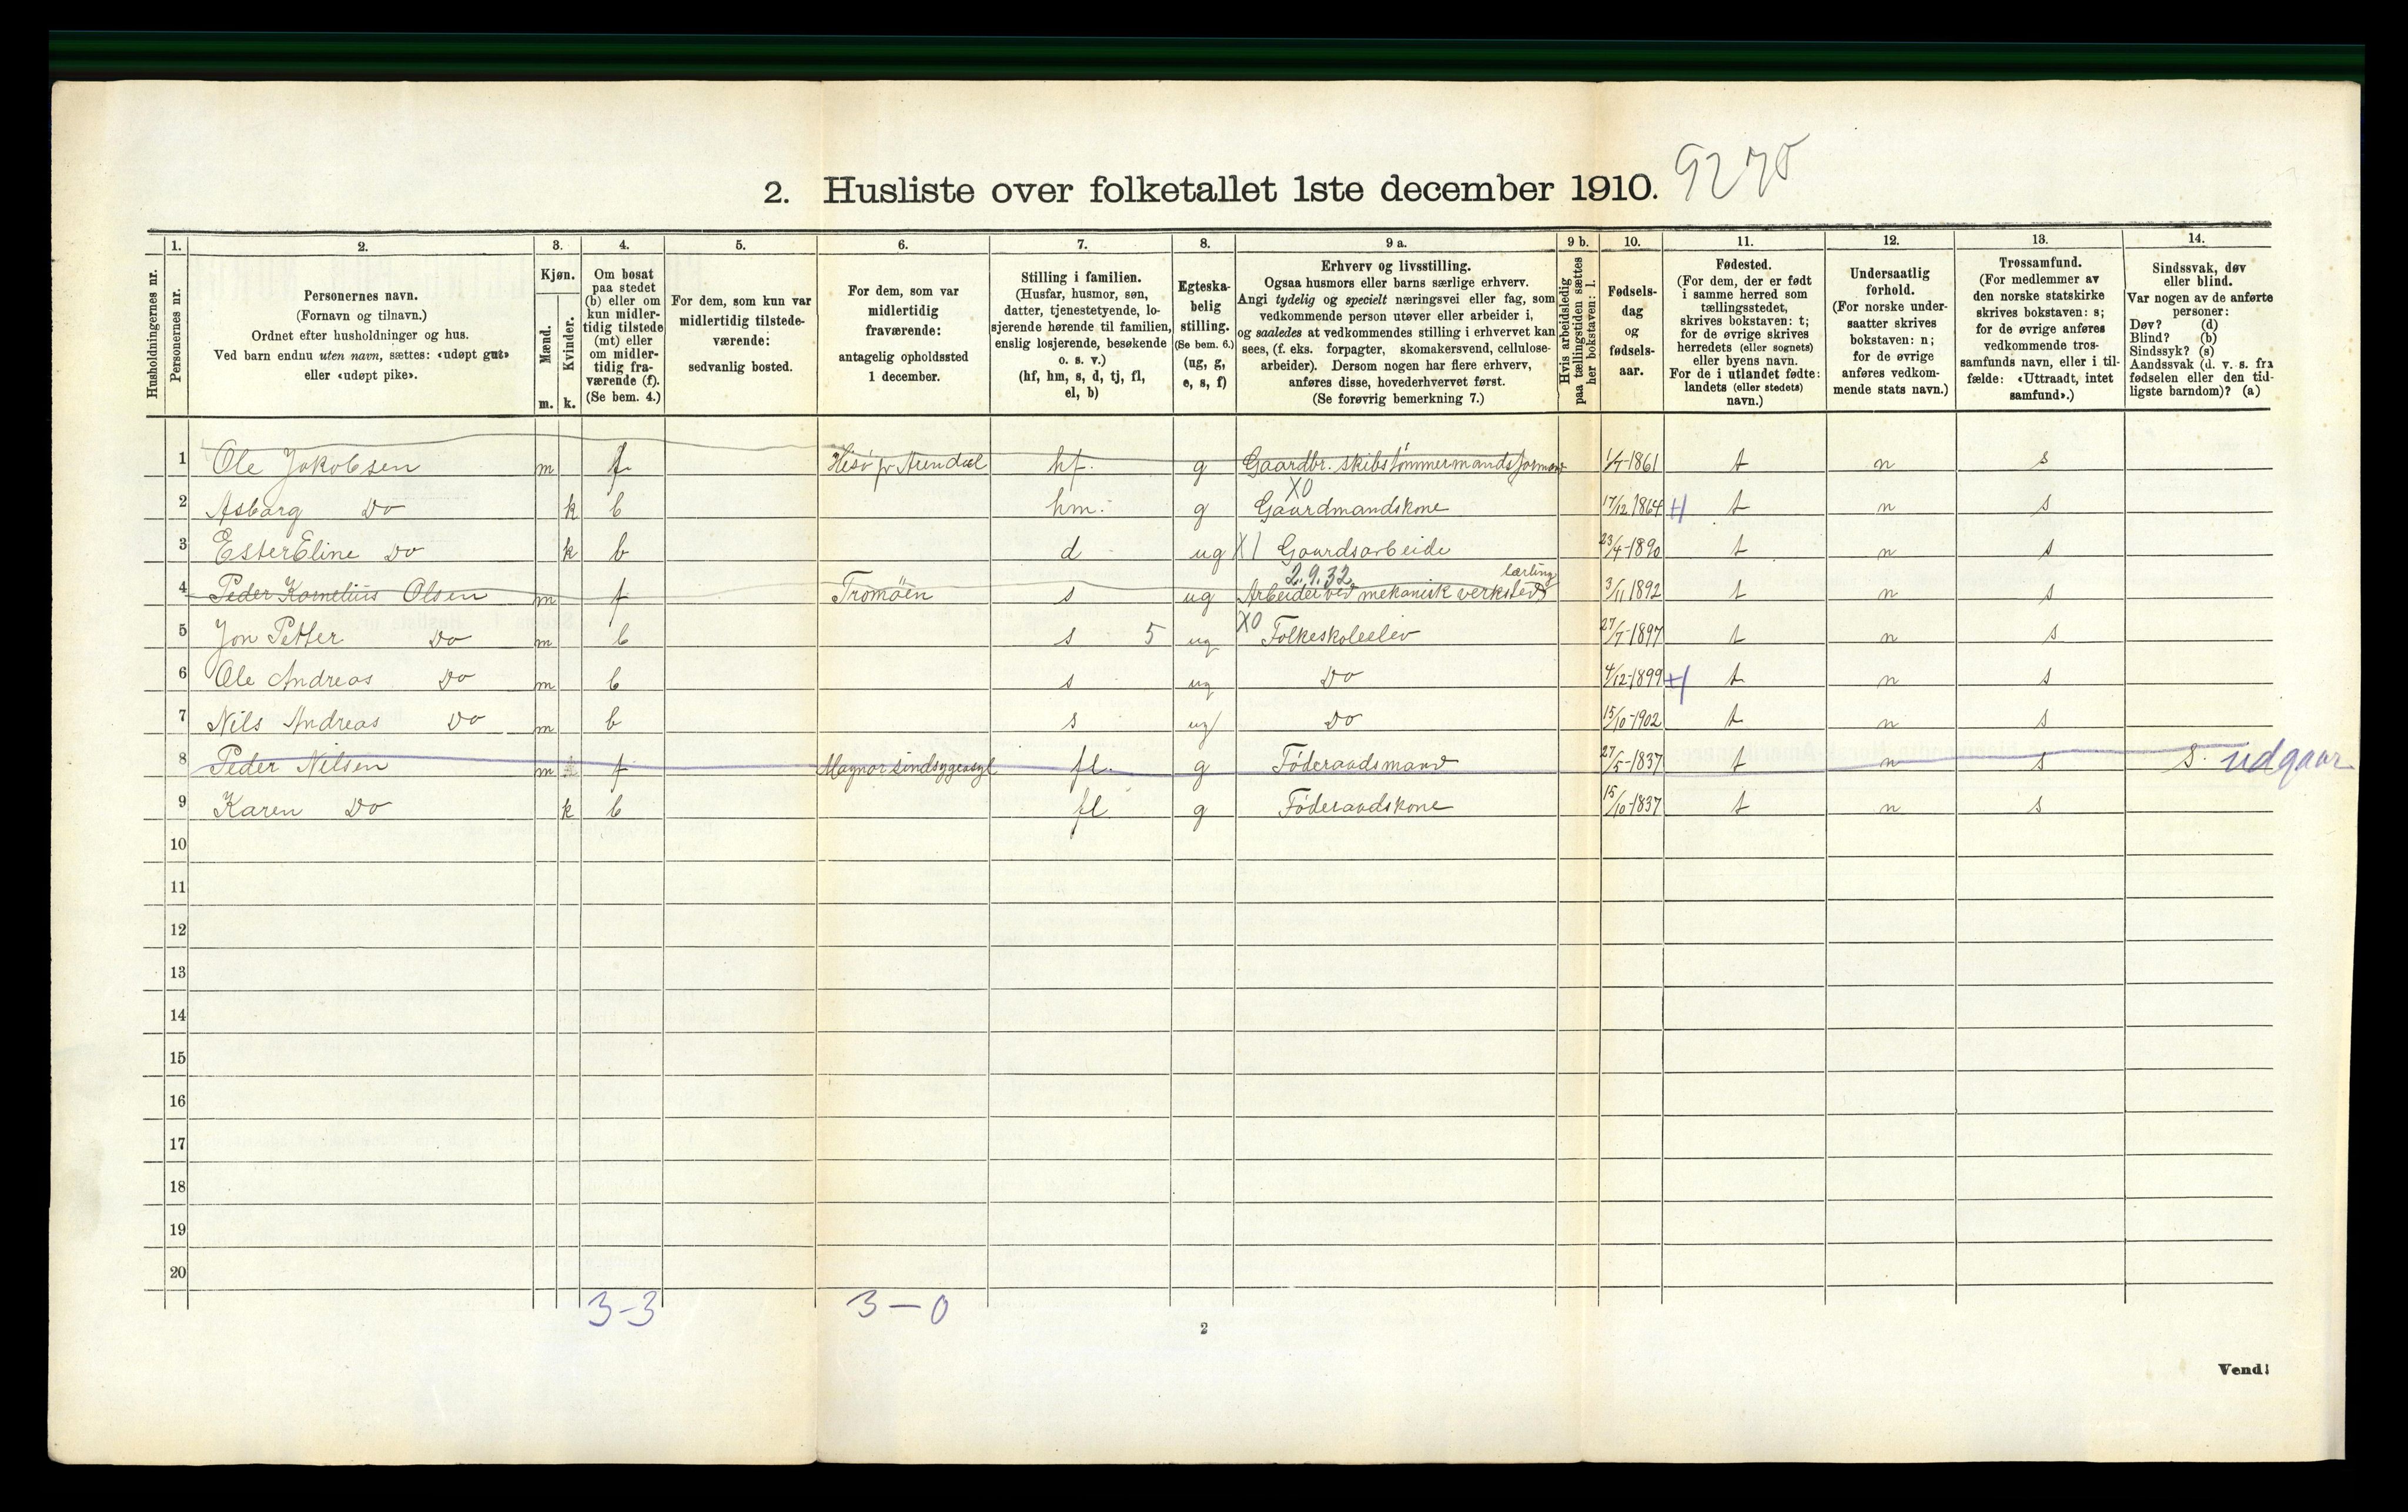 2. Husliste over folketallet 1ste december 1910. 9270
1. 2. 3. 4. 5. 6. 7. 8. 9 a. 9 b. 10. 11. 12. 13. 14.
Husholdningernes nr.
Personernes nr.
Personernes navn.
(Fornavn og tilnavn.)
Ordnet efter husholdninger og hus.
Ved barn endnu uten navn, sættes: «udøpt gut»
eller «udøpt pike».
Kjøn.
Mænd.
Kvinder.
m. k.
Om bosat
paa stedet
(b) eller om
kun midler-
tidig tilstede
(mt) eller
om midler-
tidig fra-
værende (f).
(Se bem. 4.)
For dem, som kun var
midlertidig tilstede-
værende:
sedvanlig bosted.
For dem, som var
midlertidig
fraværende:
antagelig opholdssted
1 december.
Stilling i familien.
(Husfar, husmor, søn,
datter, tjenestetyende, lo-
sjerende hørende til familien,
enslig losjerende, besøkende
o. s. v.)
(hf, hm, s, d, tj, fl,
el, b)
Egteska-
belig
stilling.
(Se bem. 6.)
(ug, g,
e, s, f)
Erhverv og livsstilling.
Ogsaa husmors eller barns særlige erhverv.
Angi tydelig og specielt næringsvei eller fag, som
vedkommende person utøver eller arbeider i,
og saaledes at vedkommendes stilling i erhvervet kan
sees, (f. eks. forpagter, skomakersvend, cellulose-
arbeider). Dersom nogen har flere erhverv,
anføres disse, hovederhvervet først.
(Se forøvrig bemerkning 7.)
Hvis arbeidsledig
paa tællingstiden sættes
her bokstaven: l.
Fødsels-
dag
og
fødsels-
aar.
Fødested.
(For dem, der er født
i samme herred som
tællingsstedet,
skrives bokstaven: t;
for de øvrige skrives
herredets (eller sognets)
eller byens navn.
For de i utlandet fødte:
landets (eller stedets)
navn.)
Undersaatlig
forhold.
(For norske under-
saatter skrives
bokstaven: n;
for de øvrige
anføres vedkom-
mende stats navn.)
Trossamfund.
(For medlemmer av
den norske statskirke
skrives bokstaven: s;
for de øvrige anføres
vedkommende tros-
samfunds navn, eller i til-
fælde: «Uttraadt, intet
samfund».)
Sindssvak, døv
eller blind.
Var nogen av de anførte
personer:
Døv? (d)
Blind? (b)
Sindssyk? (s)
Aandssvak (d. v. s. fra
fødselen eller den tid-
ligste barndom)? (a)
1 Ole Jakobsen m f Hisø pr Arendal hf. g Gaardbr. skibstømmermandsformand 1/7-1861 t n s
X0
2 Asborg Do k b hm. g Gaardmandskone 17/12 1864 t n s
3 Ester Eline Do k b d ug X1 Gaardsarbeide 23/4-1890 t n s
2.9.32 lærling
4 Peder Kornelius Olsen m f Tromöen s ug Arbeider ved mekanisk verksted 3/11 1892 t n s
5 Jon Petter Do m b s 5 ug X0 Folkeskoleelev 27/7-1897 t n s
6 Ole Andreas Do m b s ug Do 4/12-1899 t n s
7 Nils Andreas Do m b s ug Do 15/10-1902 t n s
8 Peder Nilsen m f Magnor sindsygeasyl fl. g Føderaadsmand 27/5-1837 t n s s. udgaar
9 Karen Do k b fl g Føderaadskone 15/10-1837 t n s
10
11
12
13
14
15
16
17
18
19
20
3-3 3-0
2
Vend!